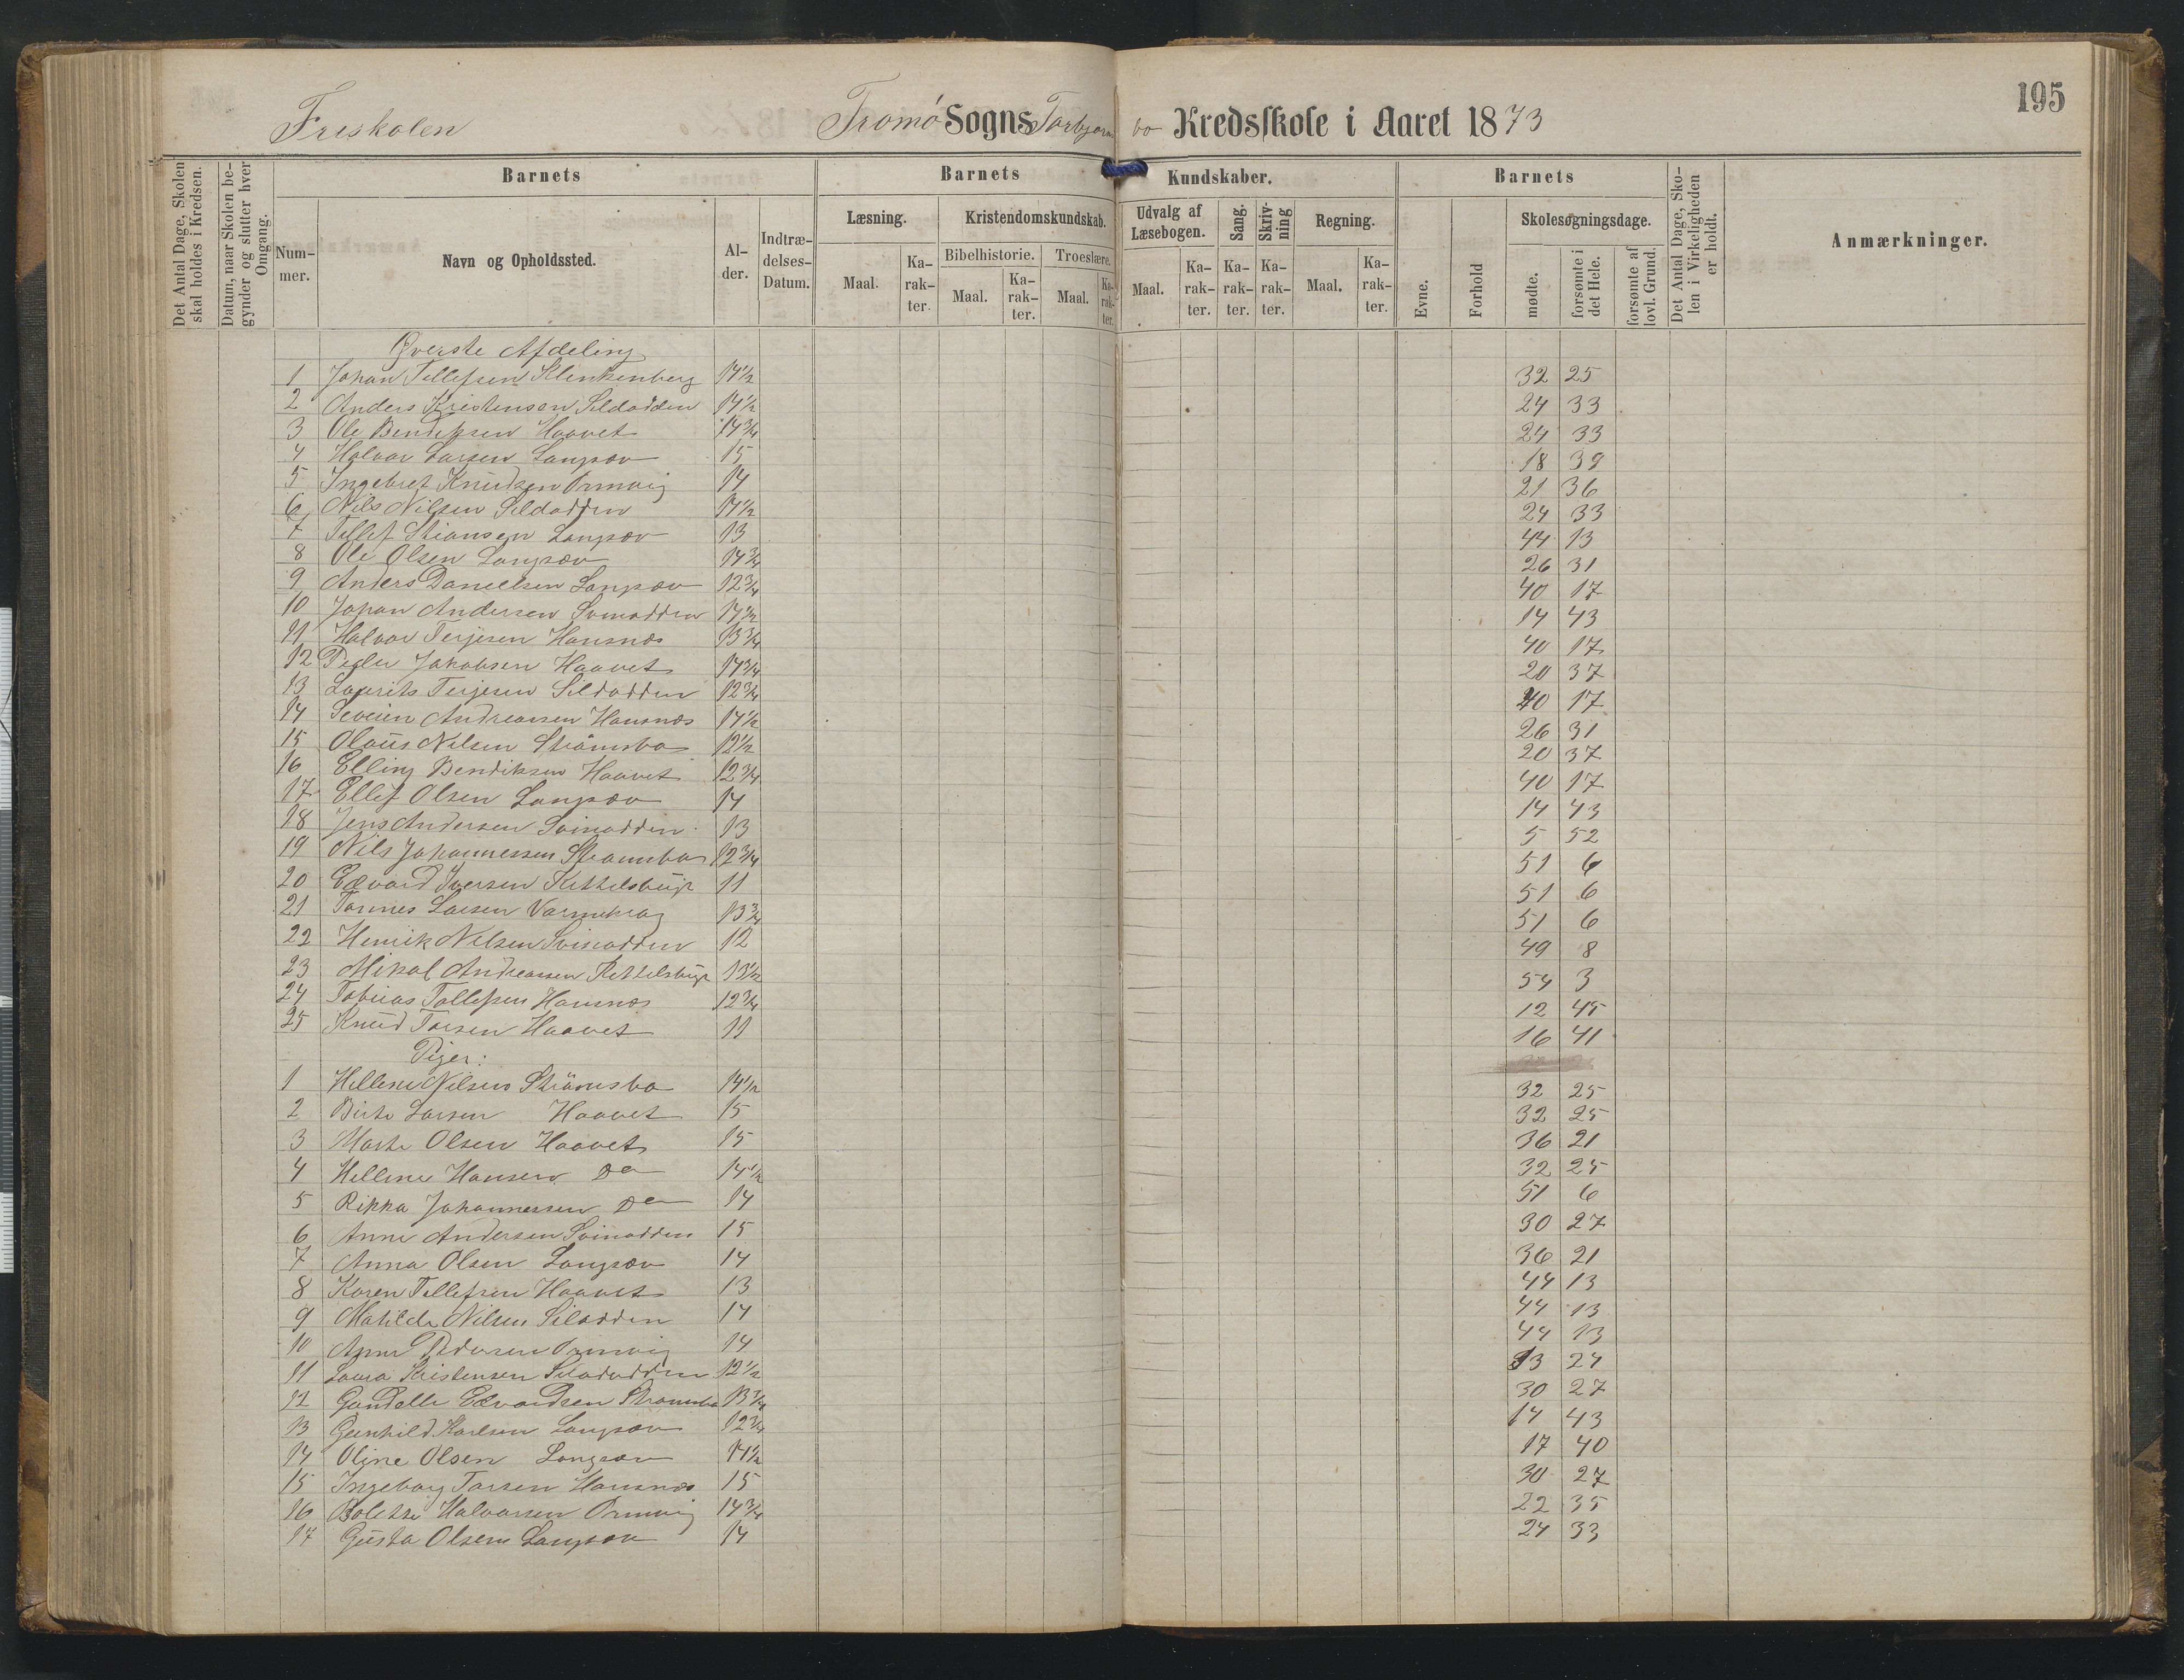 195
Friskolen Tromø Sogns Torbjørnsbo Kredsskole i Aaret 1873
Det Antal Dage, Skolen skal holdes i Kredsen.
Datum, naar Skolen begynder og slutter hver Omgang.
Barnets
Nummer.
Navn og Opholdssted.
Alder.
Indtrædelses-Datum.
Barnets Kundskaber.
Læsning.
Maal. Karakter.
Kristendomskundskab.
Bibelhistorie. Troeslære.
Maal. Karakter. Maal. Karakter.
Udvalg af Læsebogen.
Maal. Karakter.
Sang. Karakter.
Skrivning Karakter.
Regning.
Maal. Karakter.
Barnets
Evne.
Forhold
Skolesøgningsdage.
mødte.
forsømte i det Hele.
forsømte af lovl. Grund.
Det Antal Dage, Skolen i Virkeligheden er holdt.
Anmærkninger.
Øverste Afdeling
1 Johan Tellefsen Klinkenberg 14½ 32 25
2 Anders Kristensen Sildodden 14½ 24 33
3 Ole Bendiksen Haavet 14¾ 24 33
4 Halvor Larsen Langsæv 15 18 39
5 Ingebret Knudsen Ormvig 14 21 36
6 Nils Nilsen Sildodden 14½ 24 33
7 Tellef Stiansen Langsæv 13 44 13
8 Ole Olsen Langsæv 14¾ 26 31
9 Anders Danielsen Langsæv 12¾ 40 17
10 Johan Andersen Svinodden 14½ 14 43
11 Halvor Terjesen Hansnæs 13¾ 40 17
12 Peder Jakobsen Haavet 14¾ 20 37
13 Laurits Terjesen Sildodden 12¾ 40 17
14 Severin Andreasen Hansnæs 14½ 26 31
15 Olaus Nilsen Strømsbo 12½ 20 37
16 Elling Bendiksen Haavet 12¾ 40 17
17 Ellef Olsen Langsæv 14 14 43
18 Jens Andersen Svinodden 13 5 52
19 Nils Johannessen Strømsbo 12¾ 51 6
20 Edvard Iversen Kittelsbugt 11 51 6
21 Tønnes Larsen 13¾ 51 6
22 Henrik Nilsen Svinodden 12 49 8
23 Mikal Andreassen Kittelsbugt 13½ 54 3
24 Tobias Tallefsen Hansnæs 12¾ 12 45
25 Knud Torsen Haavet 11 16 41
Piger:
1 Helline Nilsen Strømsbo 14½ 32 25
2 Birte Larsen Haavet 15 32 25
3 Marte Olsen Haavet 15 36 21
4 Helline Hansen Do 14½ 32 25
5 Rikka Johannessen Do 14 51 6
6 Anne Andersen Svinodden 15 30 27
7 Anna Olsen Langsæv 14 36 21
8 Karen Tellefsen Haavet 13 44 13
9 Matilde Nilsen Silodden 14 44 13
10 Anne Pedersen Ormvig 14 44 13
11 Laura Kristensen Sildodden 12½ 24
12 Edvardsen Strømsbo 13¾ 30 27
13 Gunhild Karlsen Langsæv 12¾ 14 43
14 Oline Olsen Langsæv 14½ 17 40
15 Ingeborg Torsen Hansnæs 15 30 27
16 Bolette Halvorsen Ormvig 14¾ 22 35
17 Gusta Olsen Langsæv 14 24 33